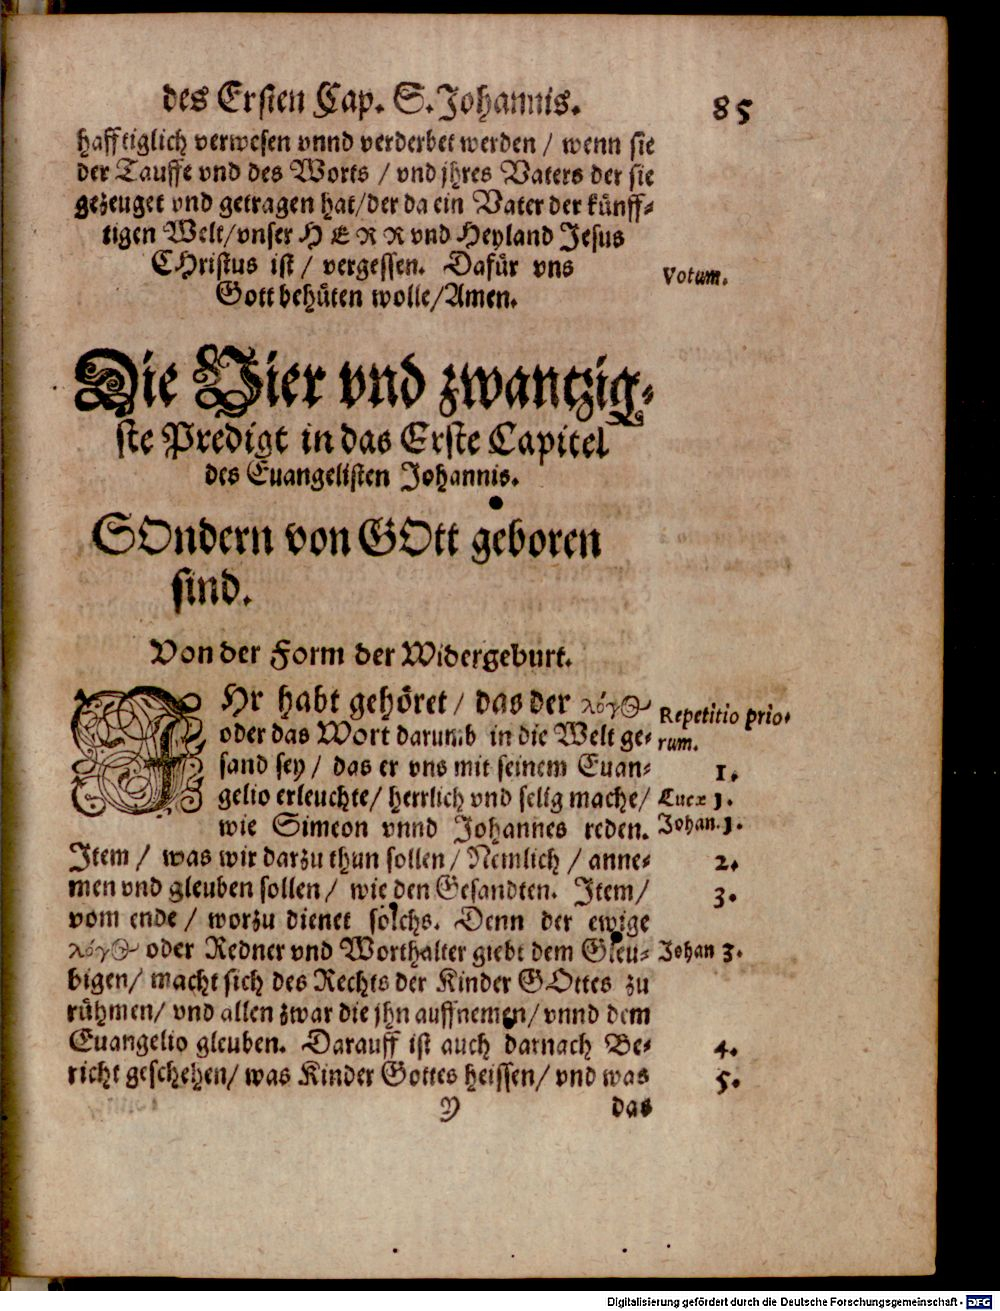 des Ersten Cap. S. Johannis. 85
hafftiglich verwesen vnnd verderbet werden / wenn sie
der Tauffe vnd des Worts / vnd jhres Vaters der sie
gezeuget vnd getragen hat/der da ein Vater der künff-
tigen Welt/vnser HERR vnd Heyland Jesus
CHristus ist / vergessen. Dafür vns
Votum.
Gott behüten wolle/Amen.
Die Vier vnd zwantzig-
ste Predigt in das Erste Capitel
des Euangelisten Johannis.
SOndern von GOtt geboren
sind.
Von der Form der Widergeburt.
IHr habt gehöret / das der λόγος
Repetitio prio-
oder das Wort darumb in die Welt ge-
rum.
sand sey / das er vns mit seinem Euan-
1.
gelio erleuchte/ herrlich vnd selig mache/
Lucæ 1.
wie Simeon vnnd Johannes reden.
Johan. 1.
Item / was wir darzu thun sollen / Nemlich / anne-
2.
men vnd gleuben sollen / wie den Gesandten. Item/
3.
vom ende / worzu dienet solchs. Denn der ewige
λόγος oder Redner vnd Worthalter giebt dem Gleu-
Johan 3.
bigen/ macht sich des Rechts der Kinder GOttes zu
rühmen/ vnd allen zwar die jhn auffnemen/ vnnd dem
Euangelio gleuben. Darauff ist auch darnach Be-
4.
richt geschehen/ was Kinder Gottes heissen/ vnd was
5.
Y das
Digitalisierung gefördert durch die Deutsche Forschungsgemeinschaft - DFG